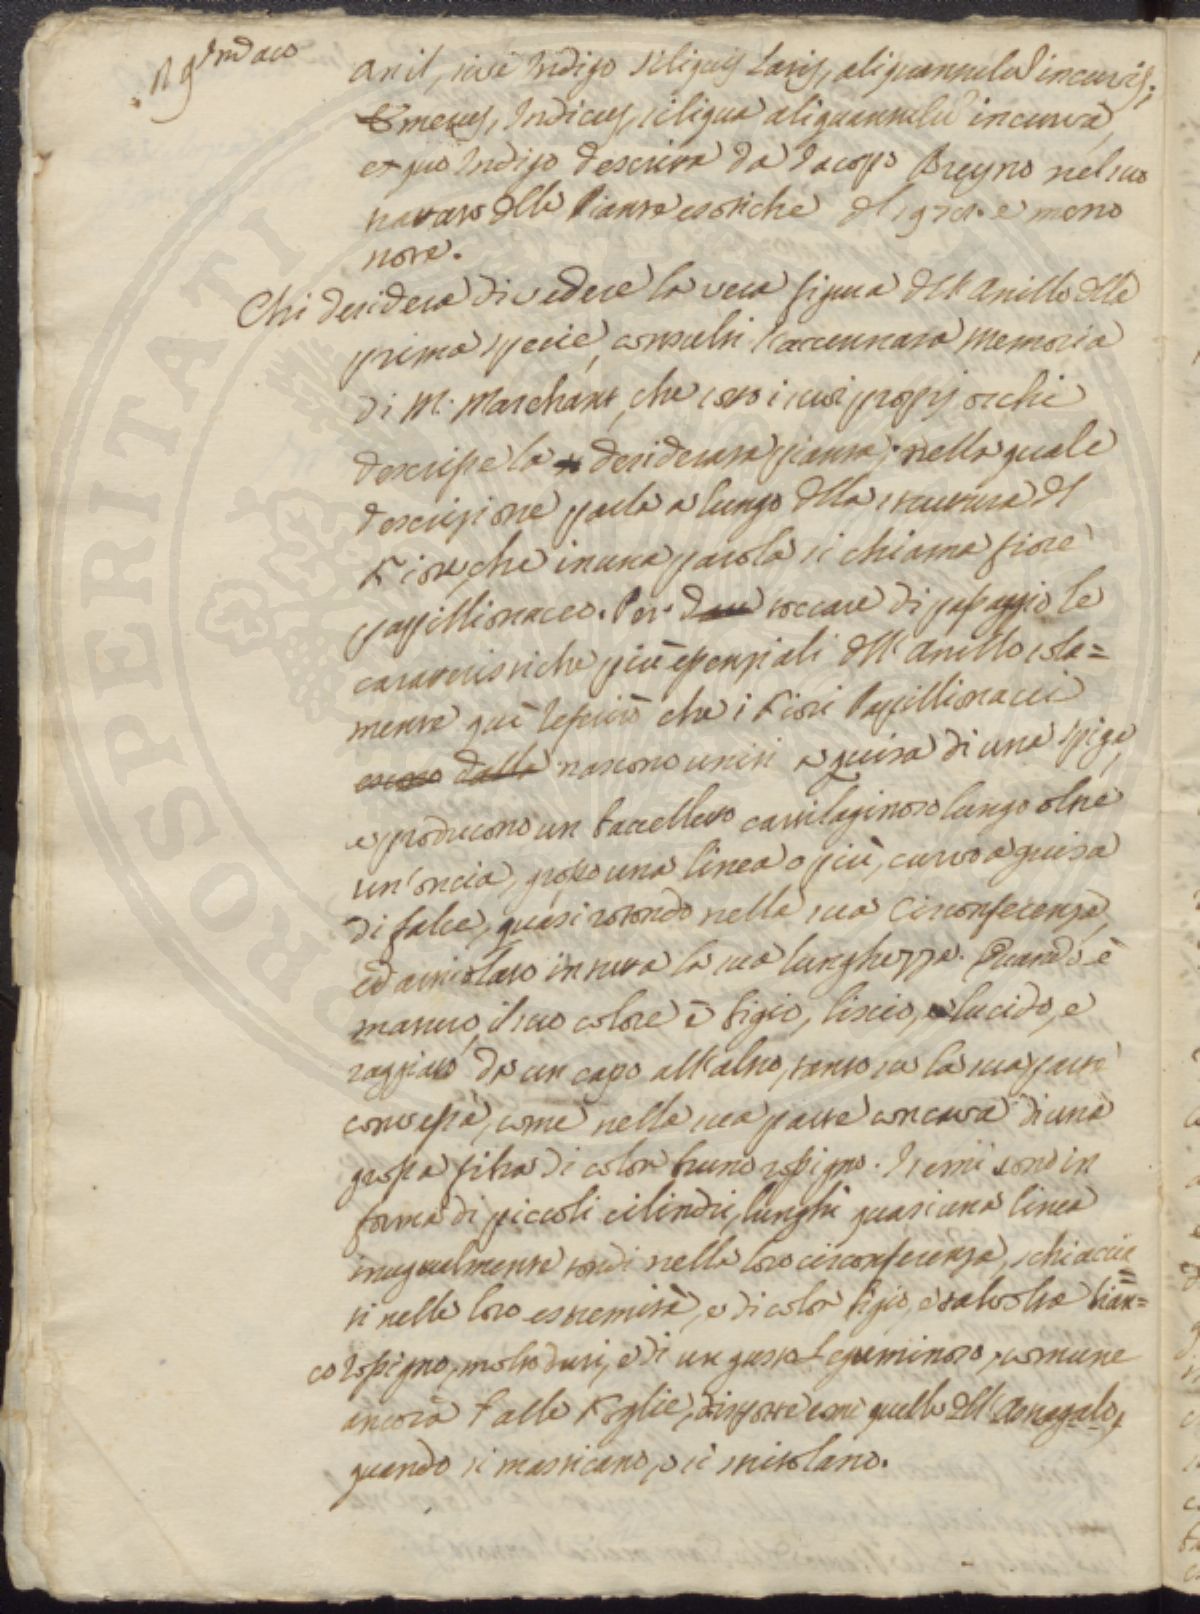 Anil, sive Indigo siliquis Latis, aliquantulum incurvis;
Emerus, Indicus, siliqua aliquantulum incurva,
ex quo Indigo descritta da Iacopo Breyno nel suo
trattato delle Piante esotiche del e meno
nove.
Chi desidera di vedere la vera figura dell'Anillo della
prima specie, consulti l'accennata memoria
di M. Marchant, che sotto i suoi proprj occhi
descrisse la desiderata pianta; nella quale
descrizione parla a lungo della struttura del
Fiore, che in una parola si chiama fiore
papillionaceo. Per dare toccare di passaggio le
caratteristiche più essenziali dell'Anillo, sola=
mente quì riferirò che i Fiori Papillionacei
escono dalla nascono uniti a guisa di una spiga,
e producono un baccelletto cartilaginoso lungo oltre
un'oncia, grosso una linea o più, curvo a guisa
di falce, quasi rotondo nella sua circonferenza,
ed articolato in tutta la sua lunghezza. Quando è
maturo, il suo colore è bigio, liscio, e lucido, e
raggiato da un capo all'altro, tanto su la sua parte
convessa, come nella sua parte concava di una
grossa fibra di color bruno rossigno. I semi sono in
forma di piccoli cilindri, lunghi quasi una linea
inugualmente tondi nella loro circonferenza, schiaccia=
ti nelle loro estremità, e di color bigio, e talvolta bian=
co rossigno, molto duri, e di un gusto Leguminoso, comune
ancora alle Foglie, disposte come quelle dell'Astragalo,
quando si masticano, o si stritolano.